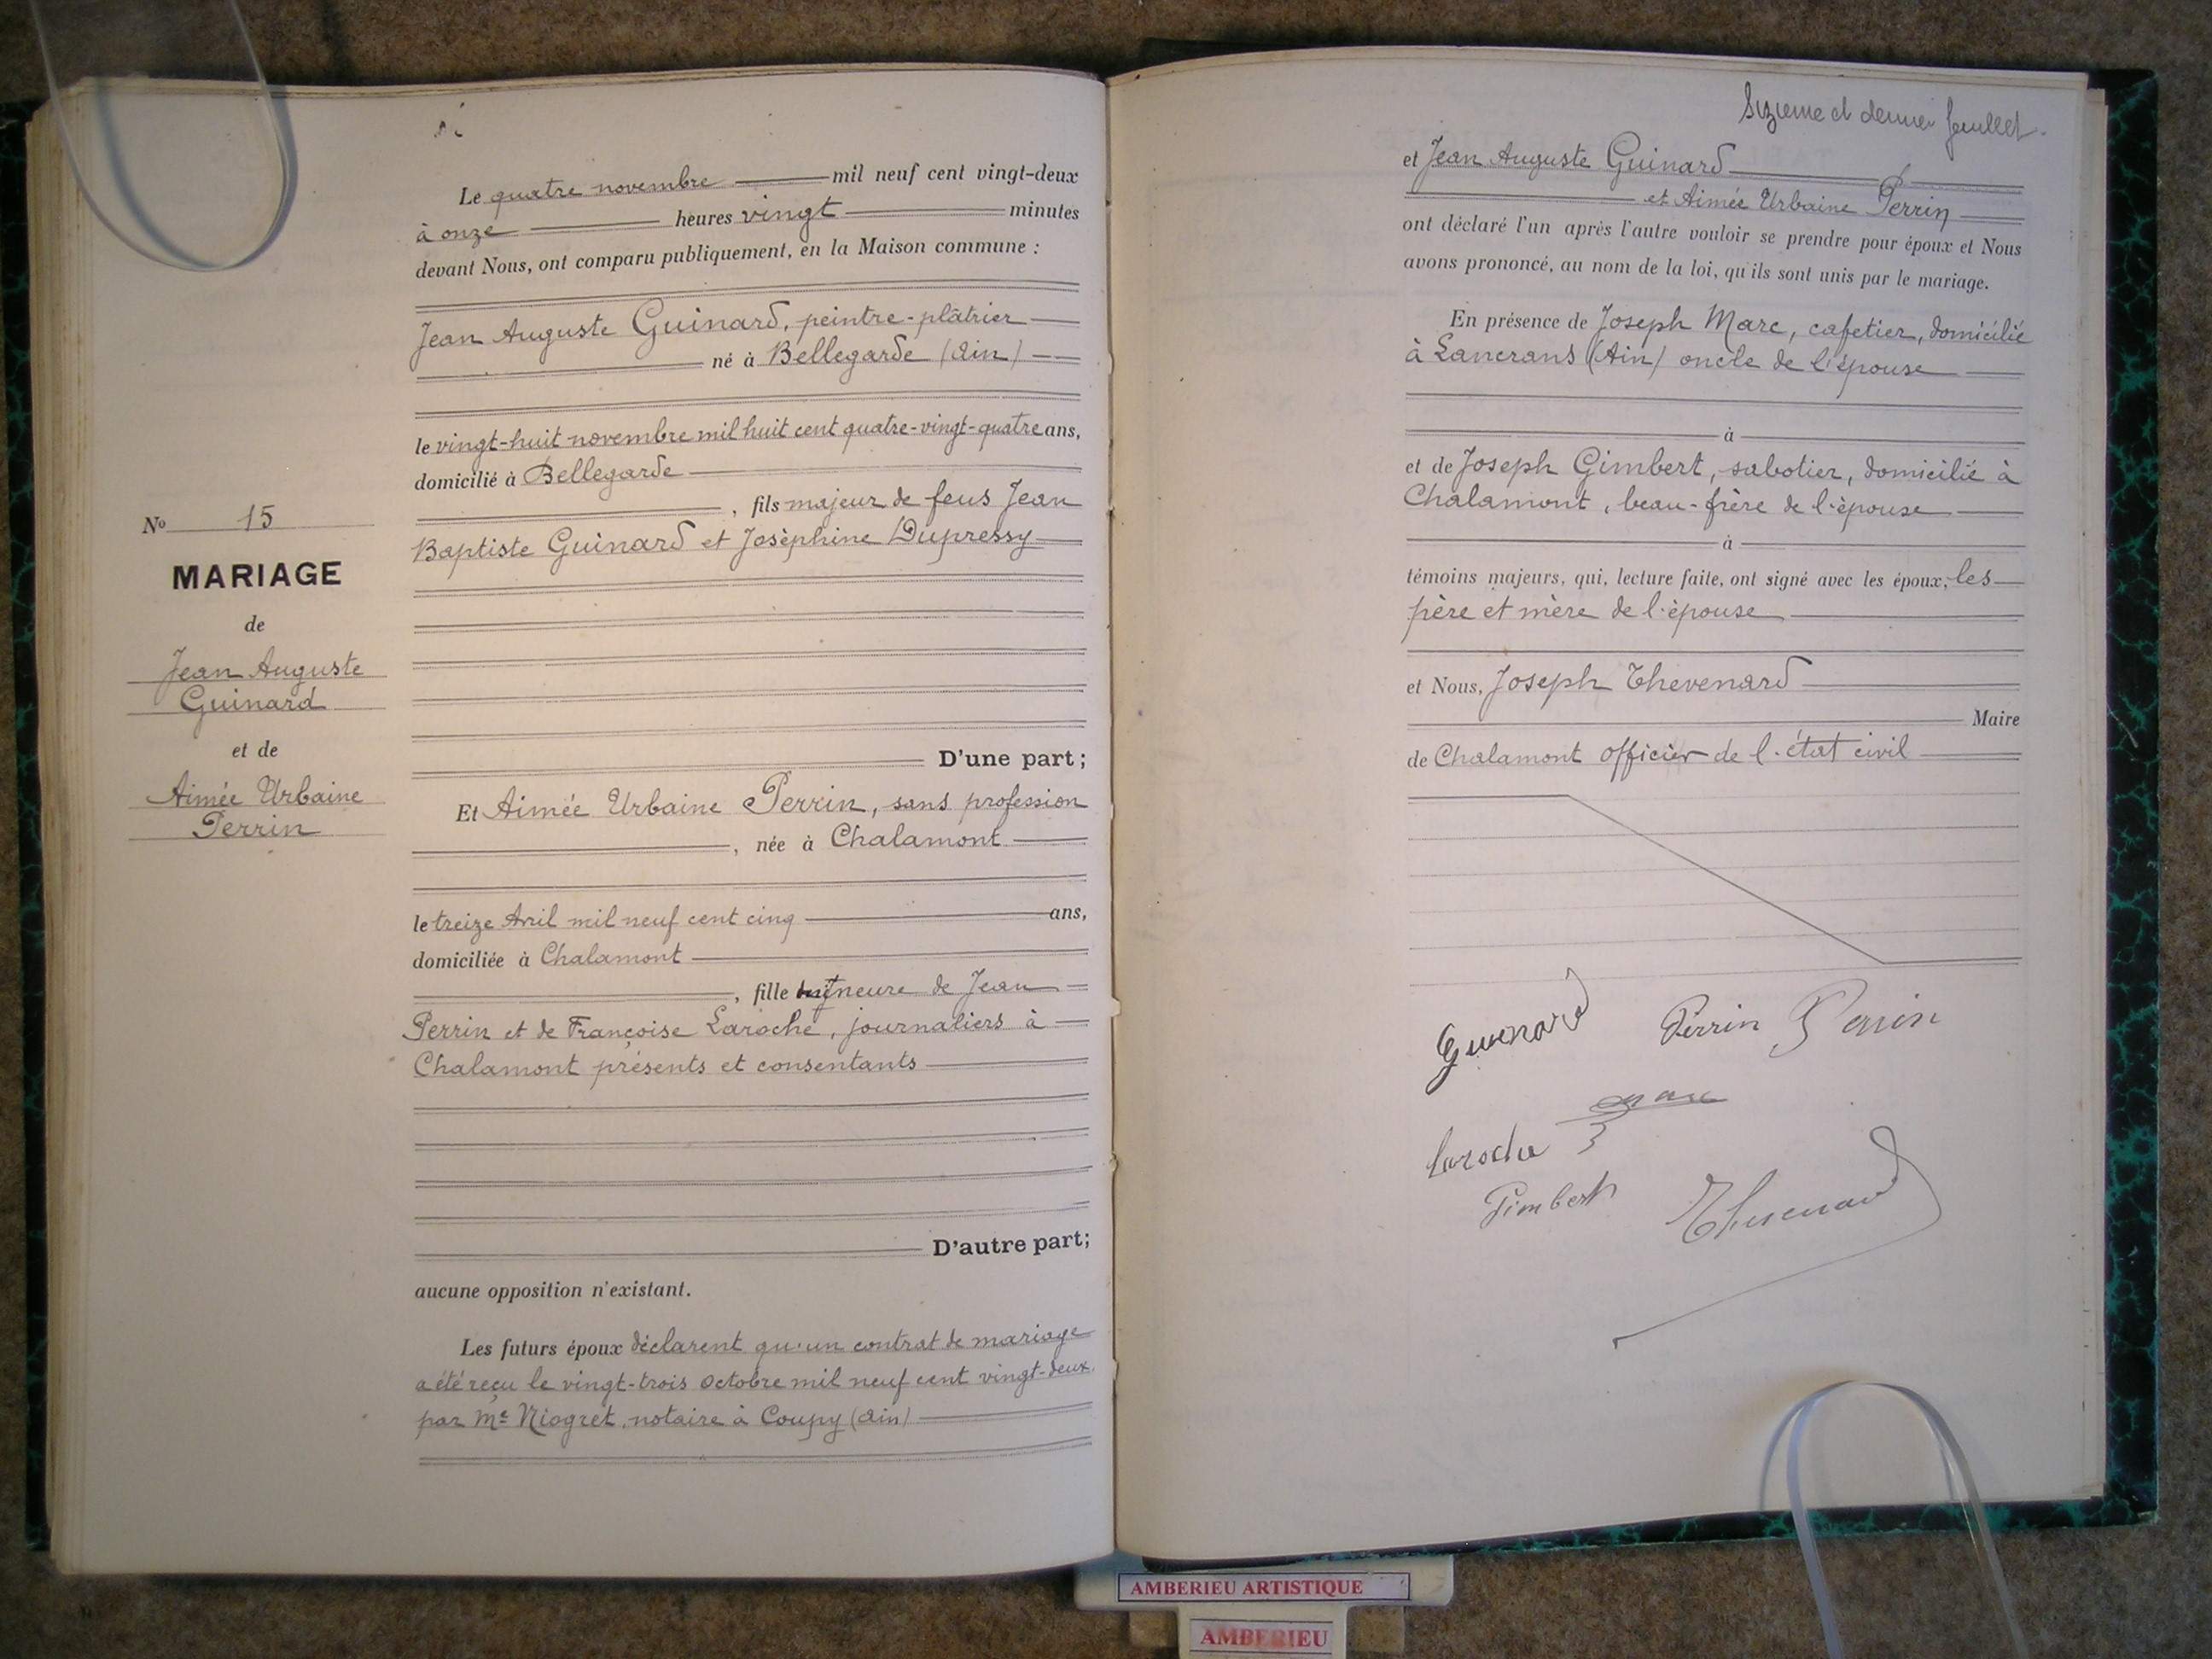 Le quatre novembre mil neuf cent vingt-deux
à onze heures vingt minutes
devant Nous, ont comparu publiquement, en la Maison commune :
Jean Auguste Guinard, peintre-plâtrier
né à Bellegarde (Ain)
le vingt-huit novembre mil huit cent quatre-vingt-quatre ans,
domicilié à Bellegarde
, fils majeur de feus Jean
Baptiste Guinard et Josèphine Dupressy
No 15
MARIAGE
de
Jean Auguste
Guinard
et de
Aimée Urbaine
Perrin
D'une part ;
Et Aimée Urbaine Perrin, sans profession
, née à Chalamont
le treize Avril mil neuf cent cinq ans,
domiciliée à Chalamont
, fille mineure de Jean
Perrin et de Françoise Laroche, journaliers à
Chalamont présents et consentants
D'autre part;
aucune opposition n'existant.
Les futurs époux déclarent qu'un contrat de mariage
a été reçu le vingt-trois octobre mil neuf cent vingt-deux
par Me Niogret, notaire à Coupy (Ain)
Sizieme et dernier feuillet.
et Jean Auguste Guinard
et Aimée Urbaine Perrin
ont déclaré l'un après l'autre vouloir se prendre pour époux et Nous
avons prononcé, au nom de la loi, qu'ils sont unis par le mariage.
En présence de Joseph Marc, cafetier, domicilié
à Lancrans (Ain) oncle de l'épouse
à
et de Joseph Gimbert, sabotier, domicilié à
Chalamont, beau-frère de l'épouse
à
témoins majeurs, qui, lecture faite, ont signé avec les époux, les
père et mère de l'épouse
et Nous, Joseph Thevenard
Maire
de Chalamont officier de l'état civil
Guinard Perrin Perrin
Marc
Laroche
Gimbert Thevenard
AMBERIEU ARTISTIQUE
AMBERIEU